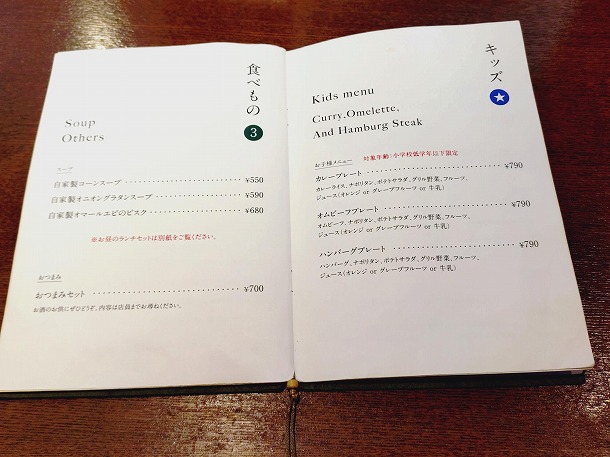 食べもの
3
Soup
Others
スープ
自家製コーンスープ ¥550
自家製オニオングラタンスープ ¥590
自家製オマールエビのビスク ¥680
※お昼のランチセットは別紙をご覧ください。
おつまみ
おつまみセット ¥700
お酒のお供にぜひどうぞ。内容は店員までお尋ねください。
キッズ
Kids menu
Curry,Omelette,
And Hamburg Steak
お子様メニュー 対象年齢:小学校低学年以下限定
カレープレート ¥790
カレーライス、ナポリタン、ポテトサラダ、グリル野菜、フルーツ、
ジュース(オレンジ or グレープフルーツ or 牛乳)
オムビーフプレート ¥790
オムビーフ、ナポリタン、ポテトサラダ、グリル野菜、フルーツ、
ジュース(オレンジ or グレープフルーツ or 牛乳)
ハンバーグプレート ¥790
ハンバーグ、ナポリタン、ポテトサラダ、グリル野菜、フルーツ、
ジュース(オレンジ or グレープフルーツ or 牛乳)